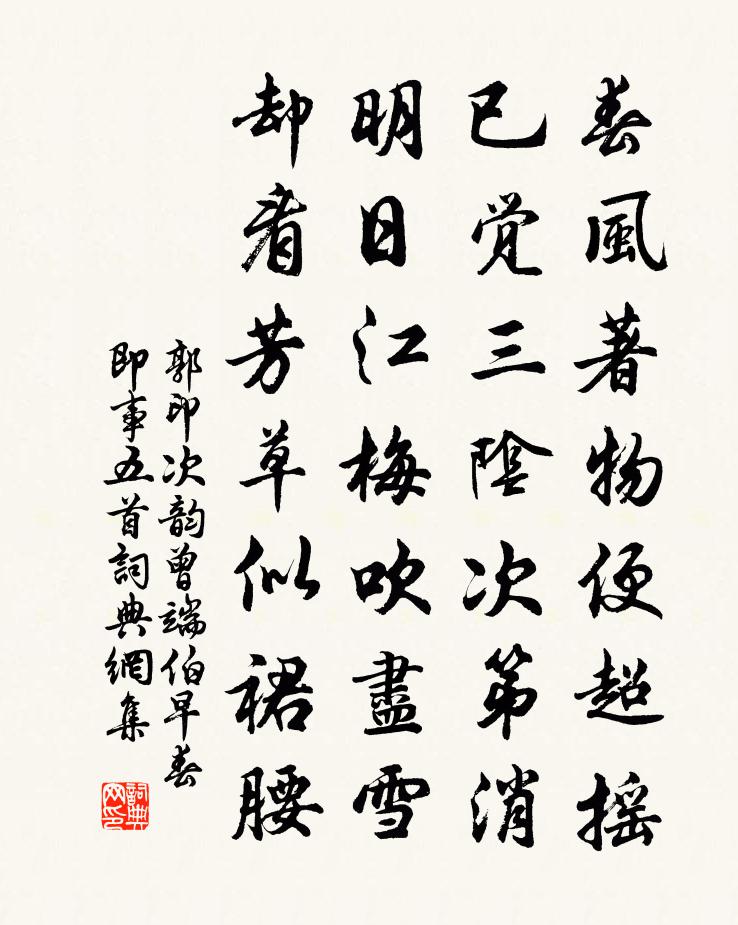 春風著物便超摇
已觉三陰次第消
明日江梅吹盡雪
却看芳草似裙腰
郭印次韵曾端伯早春
即事五首詞典網集
詞典网印